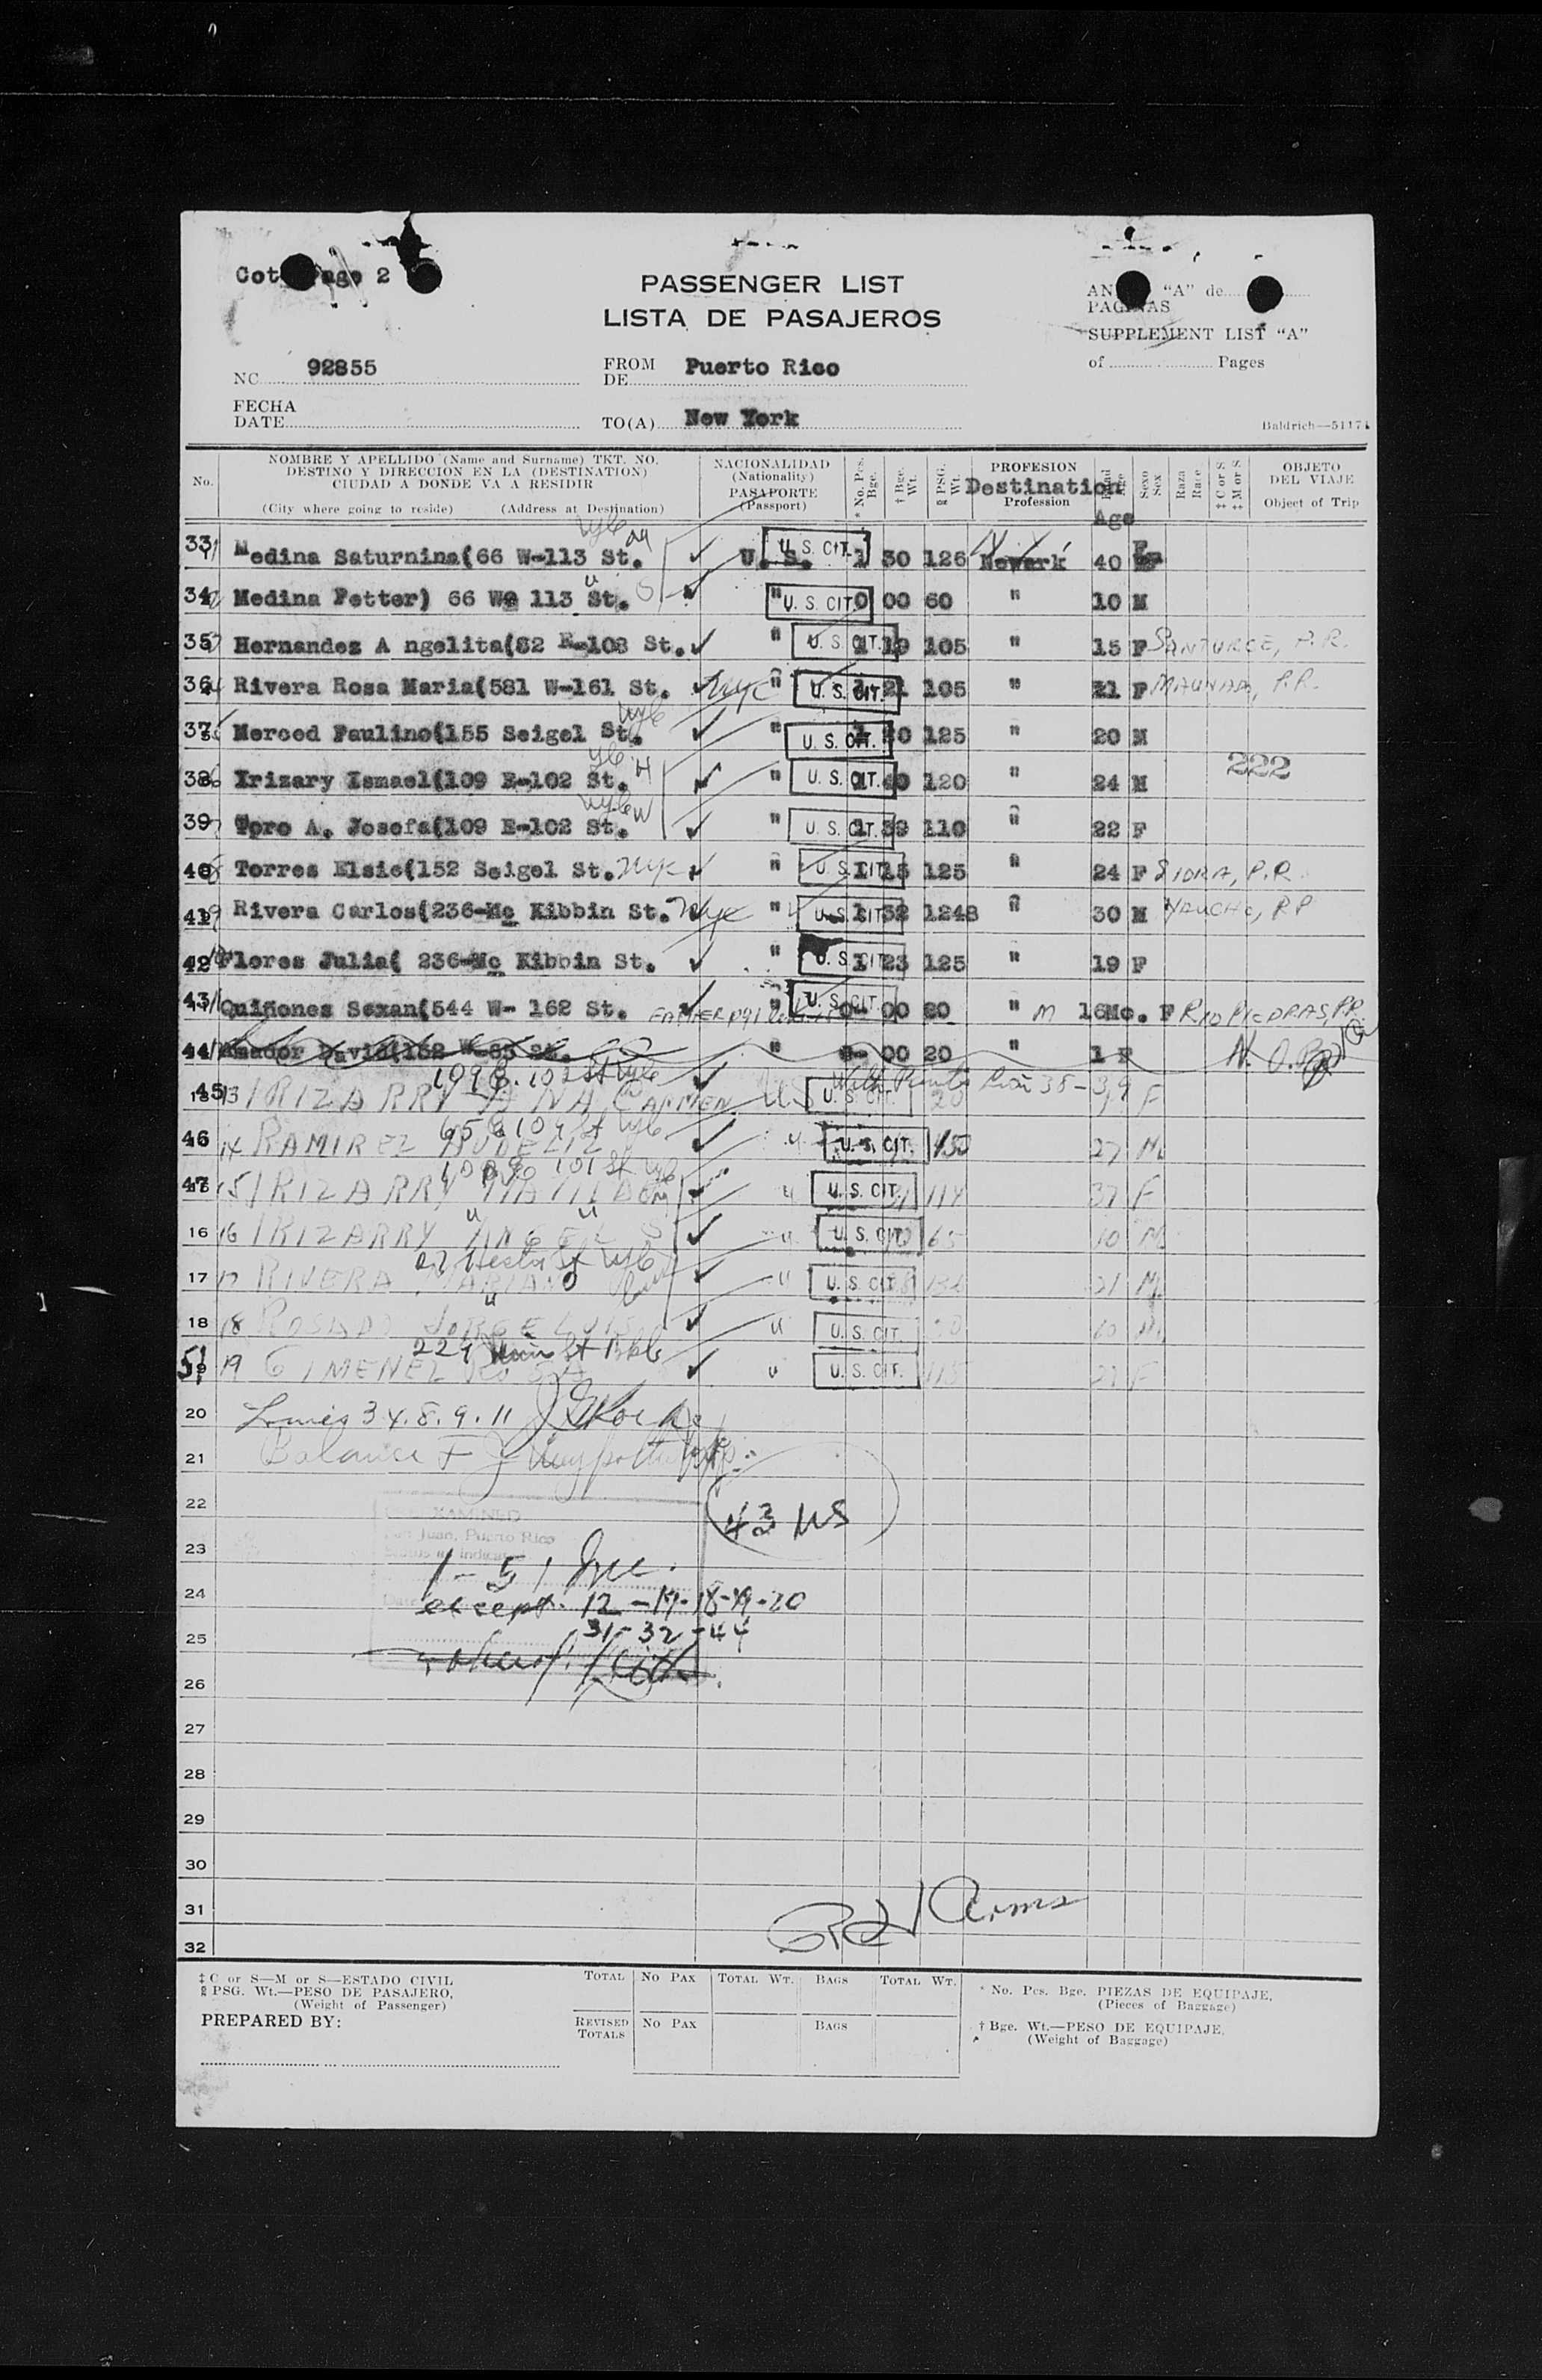 Cot Page 2
PASSENGER LIST
LISTA DE PASAJEROS
"A" de
PAGINAS
SUPPLEMENT LIST "A"
of Pages
NO 92855
FROM
DE Puerto Rico
FECHA
DATE
TO(A) New York
Baldrich—51171
No. NOMBRE Y APELLIDO (Name and Surname) TKT. NO.
DESTINO Y DIRECCION EN LA (DESTINATION)
CIUDAD A DONDE VA A RESIDIR
(City where going to reside) (Address at Destination)
NACIONALIDAD
(Nationality)
PASAPORTE
(Passport)
* No. Pcs. Bge.
† Bge. Wt.
PSG. Wt.
PROFESION
Destination
Profession
Edad
Age
Age
Sexo
Sex
Raza
Race
‡ C or S
‡ M or S
OBJETO
DEL VIAJE
Object of Trip
33 Medina Saturnina(66 W-113 St. U. S. U. S. CIT. 1 30 126 Newark 40 F
34 Medina Petter) 66 W 113 St. " U. S. CIT. 0 00 60 " 10 M
35 Hernandez A ngelita(82 E-108 St. " U. S. CIT. 1 19 105 " 15 F SANTURCE, P.R.
36 Rivera Rosa Maria(581 W-161 St. NYC " U. S. CIT. 1 21 105 " 21 F MAUNABO, P.R.
37 Merced Paulino(155 Seigel St. " U. S. CIT. 1 20 125 " 20 M
38 Irizary Ismael(109 E-102 St. H " U. S. CIT. 1 40 120 " 24 M 222
39 Toro A. Josefa(109 E-102 St. W " U. S. CIT. 1 39 110 " 22 F
40 Torres Elsie(152 Seigel St. NYC " U. S. CIT. 1 15 125 " 24 F SIDRA, P.R.
41 Rivera Carlos(236-Mc Kibbin St. NYC " U. S. CIT. 1 32 1248 " 30 M
42 Flores Julia( 236-Mc Kibbin St. " U. S. CIT. 1 23 125 " 19 F
43 Quiñones Sexan(544 W- 162 St. FATHER " U. S. CIT. 0 00 20 " M 16Mo. F RIO PIEDRAS, P.R.
44 Amador David(152 W-85 St. " 0- 00 20 " 1 F N. O. B.
45 13 IRIZARRY ANA CARMEN US U. S. CIT. 20 F
46 14 RAMIREZ U. S. CIT. 150 27 M
47 15 IRIZARRY U. S. CIT. 114 37 F
16 16 IRIZARRY ANGEL U. S. CIT. 65 10 M
17 17 RIVERA MARIANO U. S. CIT. 21 M
18 18 ROSADO JORGE LUIS U. S. CIT. 10 M
51 19 GIMENEZ ROSA U. S. CIT. 115 27 F
20
21 Balance
22 43 US
EXAMINED
San Juan, Puerto Rico
Status as indicated
23 1-51 Inc.
24 except. 12-17-18-19-20
25 31-32-44
26
27
28
29
30
31
32
‡ C or S—M or S—ESTADO CIVIL
PSG. Wt.—PESO DE PASAJERO,
(Weight of Passenger)
PREPARED BY:
TOTAL NO PAX TOTAL WT. BAGS TOTAL WT.
REVISED
TOTALS NO PAX BAGS
* No. Pcs. Bge. PIEZAS DE EQUIPAJE,
(Pieces of Baggage)
† Bge. Wt.—PESO DE EQUIPAJE,
(Weight of Baggage)